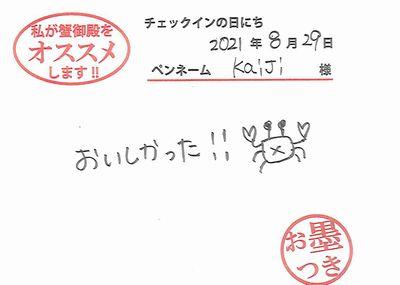 私が蟹御殿を
オススメ
します!!
チェックインの日にち
2021年8月29日
ペンネーム kaiji 様
おいしかった!!
お墨
つき